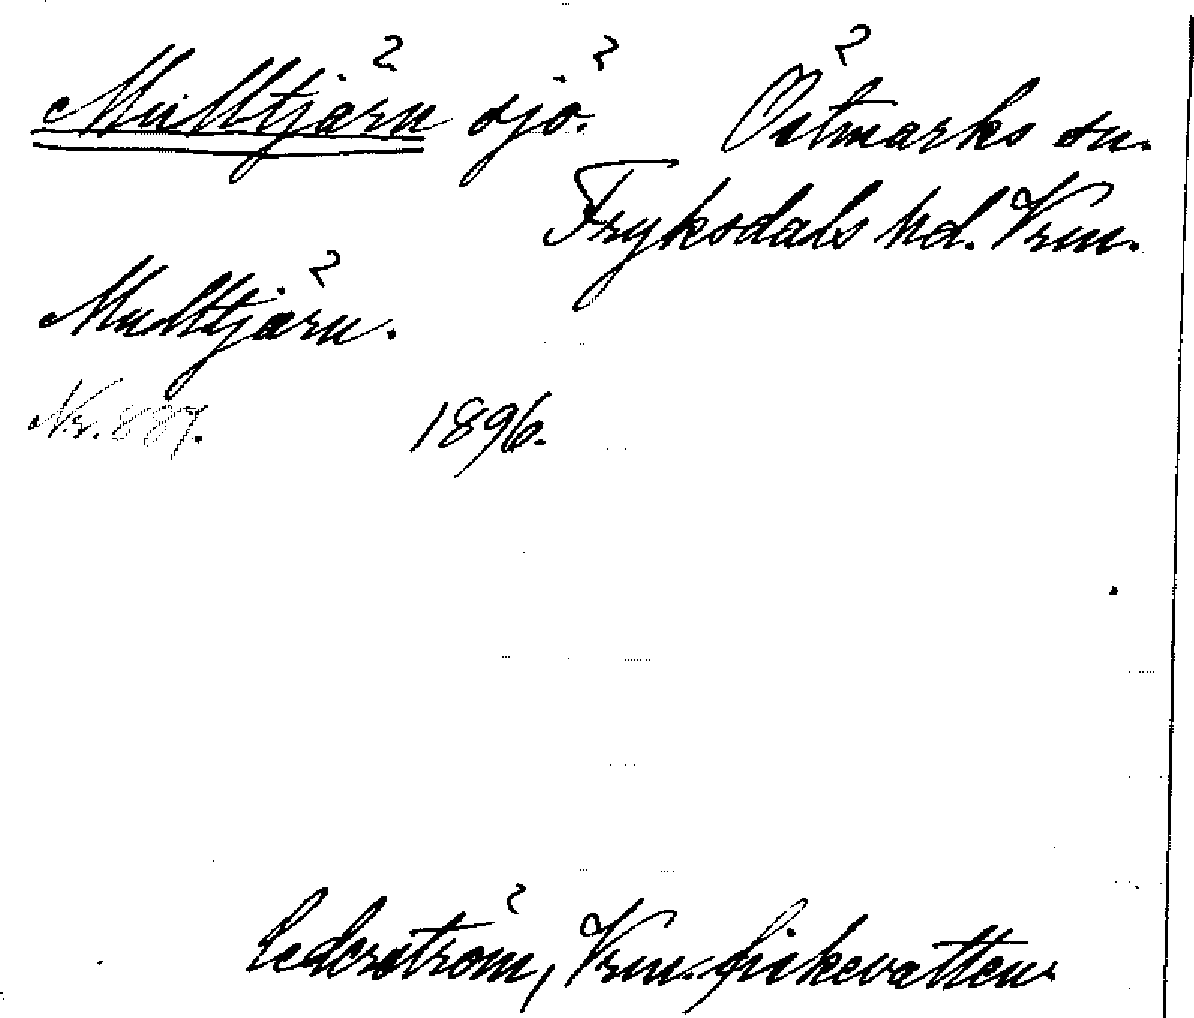 Mulltjärn sjö. Östmarks sn.
Fryksdals hd. Vrm.
Mulltjärn.
Nr. 887. 1896.
Cederström, Vrm. fiskevatten